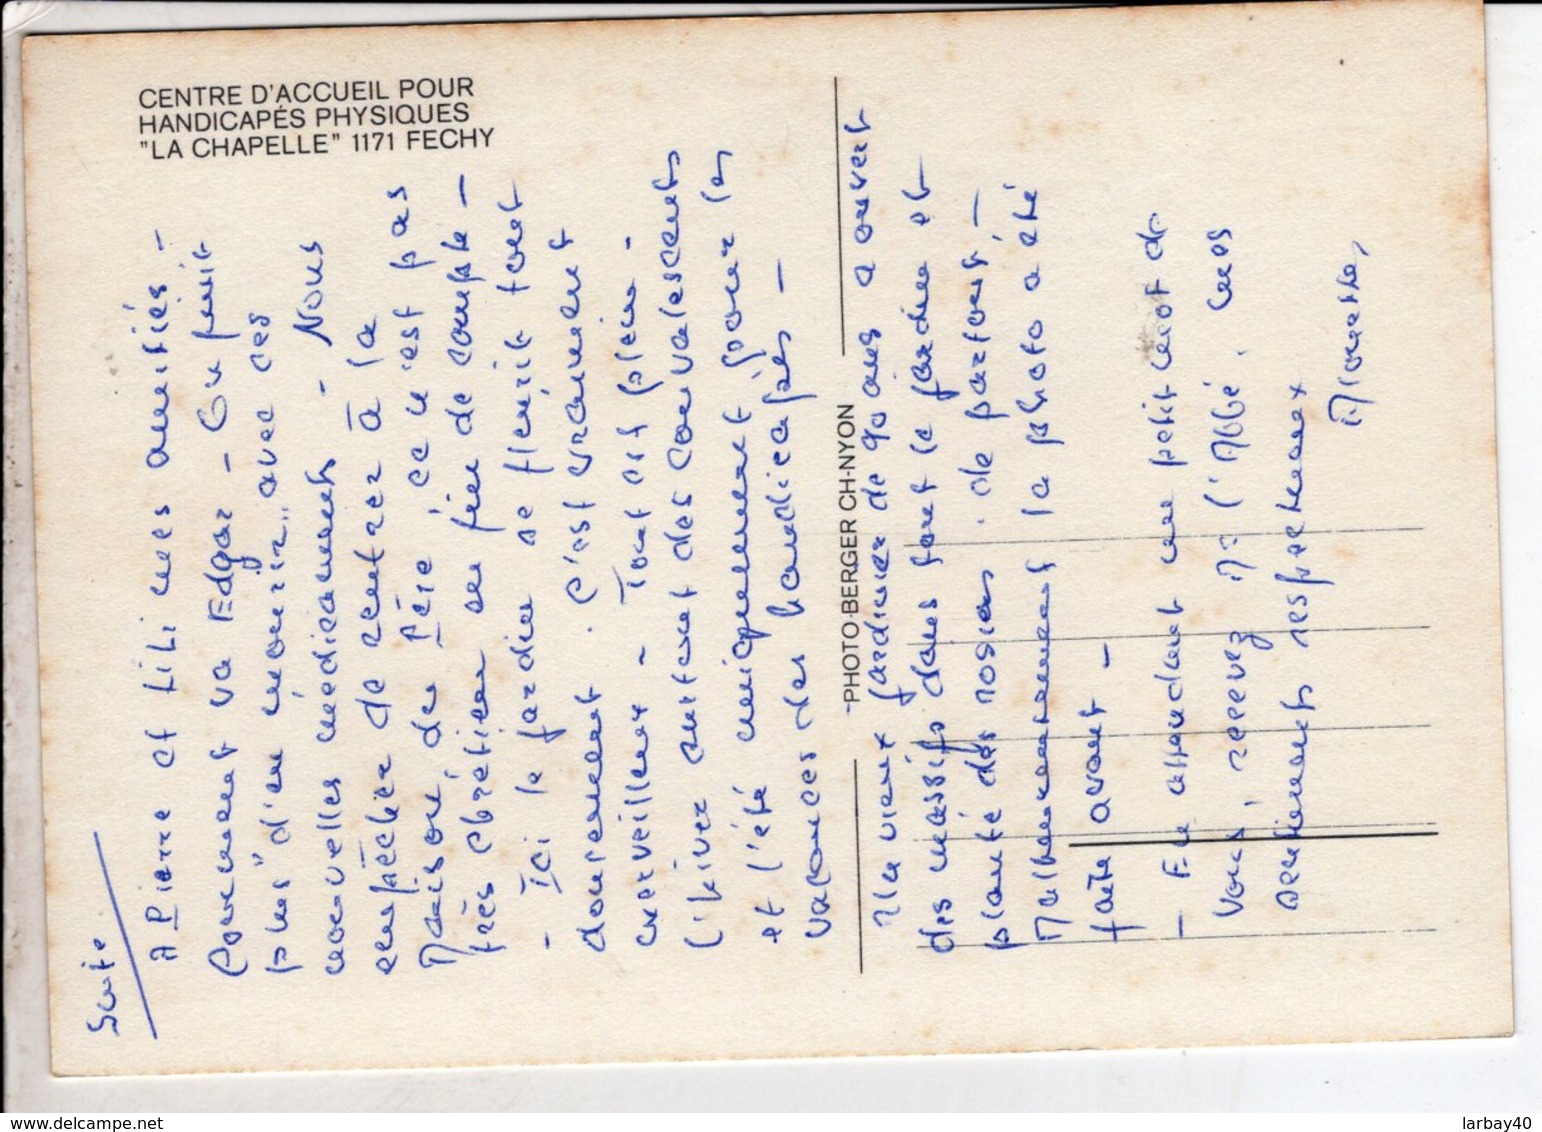 CENTRE D'ACCUEIL POUR
HANDICAPÉS PHYSIQUES
"LA CHAPELLE" 1171 FECHY
PHOTO-BERGER CH-NYON
Suite
A Pierre et Lili mes amitiés -
Comment va Edgar - On finit
plus "d'en mourir" avec ces
nouvelles médicaments - Nous
empêcher de rentrer à la
Maison du Père, ce n'est pas
très chrétien en fin de compte -
- Ici le jardin se fleurit tout
doucement. C'est vraiment
merveilleux - Tout est plein -
L'hiver surtout des convalescents
et l'été uniquement pour les
vacances des handicapés -
Un vieux jardinier de 90 ans a ouvert
des massifs dans tout le jardin et
planté des rosiers. de partout -
Malheureusement la photo a été
faite avant -
- En attendant un petit mot de
vous, recevez Mr l'Abbé, mes
sentiments respectueux